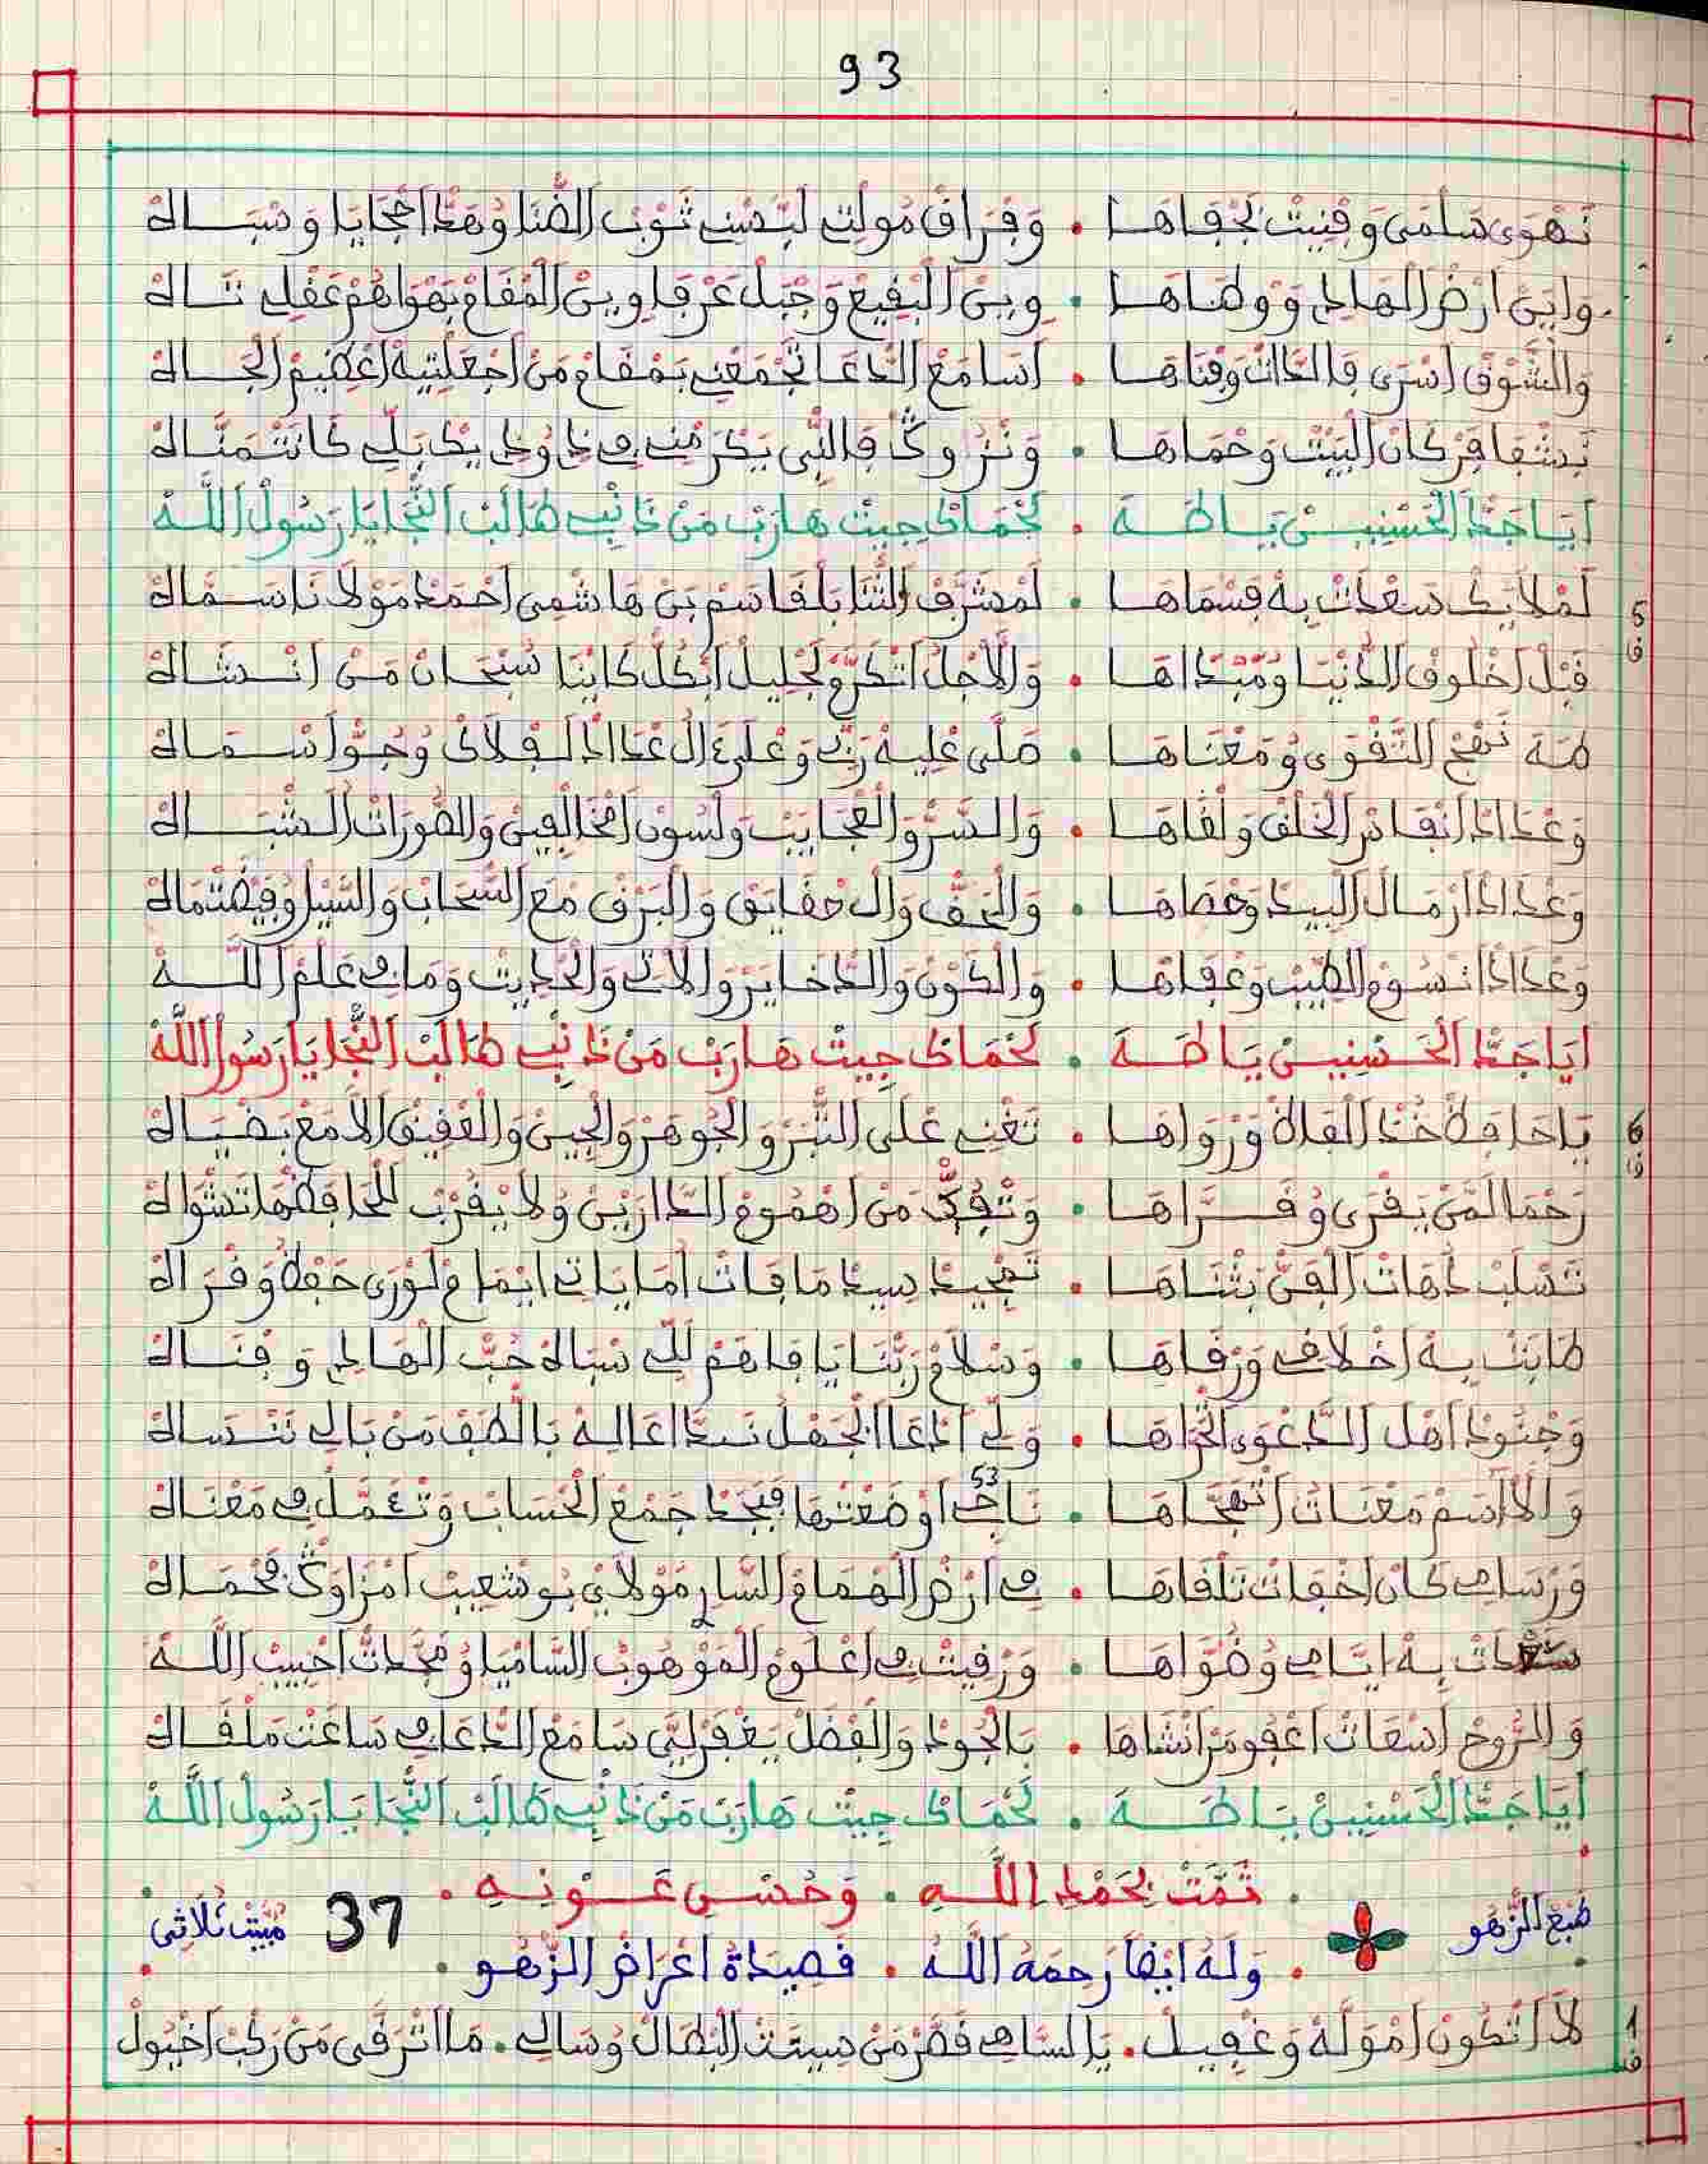 93
نَهْوَى سَلْمَى وَفْنِيتْ بَجْفَاهَا . وَفْرَاقْ مُولْتِي لَبَّسْنِي ثَوْبْ الضْنَا وُهَدَّ احْجَايَا وَسْبَاهْ
وَايَنْ أرْضْ الهَادِي وَوْطَاهَا . وِينْ البْقِيعْ وَجْبَلْ عَرْفَا وِينْ المْقَامْ بَهْوَاهُمْ عَقْلِي تَاهْ
وَالشُّوقْ اسْرَى فَالذَّاتْ وَفْنَاهَا . اسَامَعْ الدّْعَا تَجْمَعْنِي بَمْقَامْ مَنْ اجْعَلْتِيهْ اعْظِيمْ الجَاهْ
نَشْفَا فَرْكَانْ البَيْتْ وَحْمَاهَا . وَنْزُورْ فَالنّْبِي يَكْرَمْنِي فِي كَانَتْمَنَّاهْ
آيَا جَدّْ الحَسْنِينْ يَا طَهَ . لَحْمَاكْ جِيتْ هَارَبْ مَنْ ذَانْبِي طَالَبْ النّْجَا يَا رَسُولْ اللَّهْ
5 لَمْلَايَكْ سَعْدَاتْ بِهْ فَسْمَاهَا . لَمْشَرَّفْ الثّْنَا بَلْقَاسَمْ بَنْ هَاشْمِي احْمَدْ مَوْلَانَا سَمَّاهْ
ف
قَبْلْ اخْلُوقْ الدَّنْيَا وُمَبْدَاهَا . وَالَاجْلُ اتْكَرَّمْ لَجْلِيلْ ابْكُلّْ كَايْنَا سُبْحَانْ مَنْ انْشَاهْ
طَهَ نَهْجْ التَّقْوَى وُمَعْنَاهَا . صَلَّى عْلِيهْ رَبِّي وَعْلَى ءَالُ عْدَادْ لَفْلَاكْ وُجُوّْ اسْمَاهْ
وَعْدَادْ انْفَادْ الخَلْقْ وَلْقَاهَا . وَالسَّرّْ وَالعْجَايَبْ وَلْسُونْ امْخَالْفِينْ وَالصُّورَاتْ الشْبَاهْ
وَعْدَادْ ارْمَالْ البِيدْ وَحْصَاهَا . وَالحَقّْ وَالحْقَايَقْ وَالبَرْقْ مَعَ السّْحَابْ وَالسِّيلْ وُفِيضْتْ مَاهْ
وَعْدَادْ انْسُومْ الطِّيبْ وَعْفَاهَا . وَالكَوْنْ وَالدّْخَايَرْ وَالَاتِي وَالحْدِيثْ وَمَا فِي عَلْمْ اللَّهْ
آيَا جَدّْ الحَسْنِينْ يَا طَهَ . لَحْمَاكْ جِيتْ هَارَبْ مَنْ ذَانْبِي طَالَبْ النّْجَا يَا رَسُولْ اللَّهْ
6 يَا حَافَظْ خُدْ القَالَةْ وَرْوَاهَا . تَغْنِي عْلَى التّْبَرْ وَالجُوهَرْ وَالجِينْ وَالعْقِيقْ الَامَعْ بَضْيَاهْ
ف
رَحْمَا لَمَّنْ يَقْرَى وُقَرَّاهَا . وَتْفُكّْ مَنْ اهْمُومْ الدَّارَيْنْ وُلَا يْقَرَّبْ للحَافَظْهَا تَشْوَاهْ
تَسْلَبْ دَهَاتْ الفَنّْ بَثْنَاهَا . تَمْجِيدْ سِيدْ مَا فَاتْ امَا يَاتِي ايمَامْ لَوْرَى حَفْظُ وَقْرَاهْ
طَابَتْ بِهْ اخْلَاقِي وَرْقَاهَا . وَسْلَامْ رَبّْنَا يَا فَاهَمْ لَلِّي سْبَاهْ حُبّْ الهَادِي وَفْنَاهْ
وَجْنُودْ أهْلْ الدَّعْوَى اتْحَرَّاهَا . وَلِّي ادْعَا الجْهَلْ نَدْعَالِهْ بَالْطَفْ مَنْ بَالِي نَنْسَاهْ
وَالَاسَمْ مَعْنَاتْ اتْهَجَّاهَا . نَاجْ 53 اوْضَعْتْهَا فَبْجَدْ جَمْعْ الحْسَابْ وَتْئَمَّلْ فِي مَعْنَاهْ
وَرْسَامِي كَانْ اخْفَاتْ تَلْقَاهَا . فِي أرْضْ الهْمَامْ السَّارِي مُولَايْ بُوشْعِيبْ امْزَاوَكْ فَحْمَاهْ
سَعْدَاتْ بِهْ ايَّامِي وُضْوَاهَا . وَرْقِيتْ فِي اعْلُومْ المَوْهُوبْ السَّامْيَا وُمَجَّدْتْ احْبِيبْ اللَّهْ
وَالرُّوحْ اسْعَاتْ اعْفُو مَنْ انْشَاهَا . بَالجُودْ وَالفْضَلْ يَغْفَرْ لِيَّ سَامَعْ الدّْعَا فِي سَاعَتْ مَلْقَاهْ
آيَا جَدّْ الحَسْنِينْ يَا طَهَ . لَحْمَاكْ جِيتْ هَارَبْ مَنْ ذَانْبِي طَالَبْ النّْجَا يَا رَسُولْ اللَّهْ
. تَمَّتْ بِحَمْدِ اللَّهِ . وَحُسْنِ عَوْنِهِ .
طَبْعْ الزَّهْو 37 مْبَيَّتْ ثُلَاثِي
. وَلَهُ ايْضًا رَحِمَهُ اللَّهُ . قَصِيدَةُ اغْرَاضْ الزَّهْو .
1 لَا اتْكُونْ امْوَلَّهْ وَغْفِيلْ . يَا السَّاهِي قَصَّرْ مَنْ سِيرَتْ البْطَالْ وُسَالِي . مَا اتَّرْقَى مَنْ رَكْبْ اخْيُولْ
ف